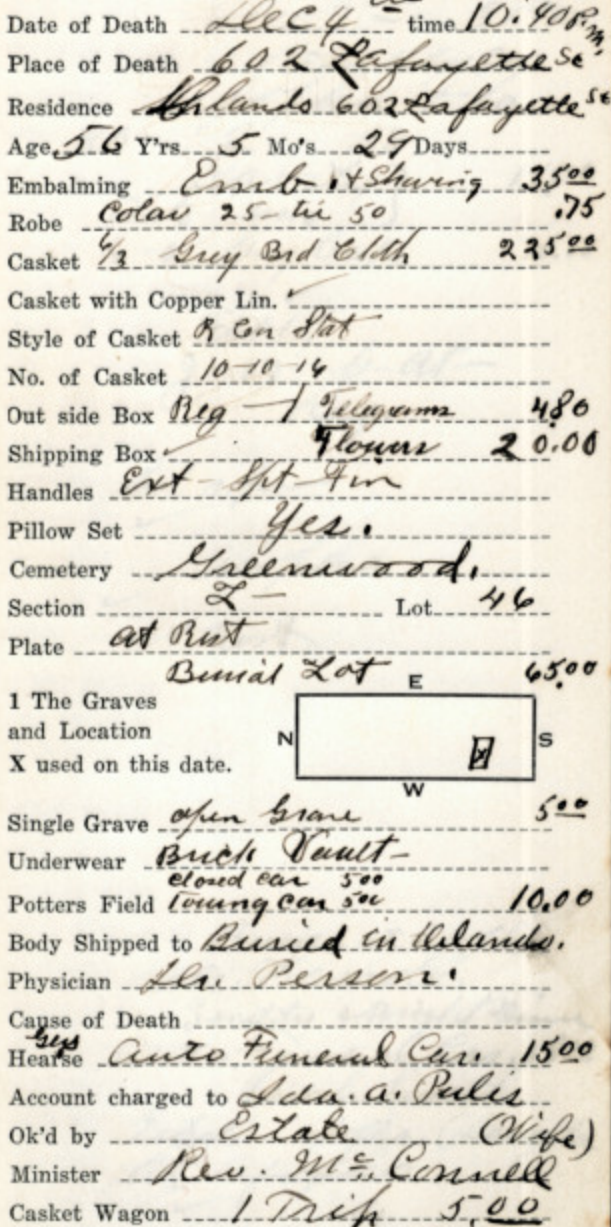 Date of Death Dec 4 time 10.40 P.m.
Place of Death 602 Lafayette St
Residence Orlando 602 Lafayette St
Age 56 Y'rs 5 Mo's 29 Days
Embalming Emb. & Shaving 35 00
Robe Colar 25 - tie 50 .75
Casket 6/3 Grey Brd Cloth 225 00
Casket with Copper Lin.
Style of Casket Stat
No. of Casket 10-10-16
Out side Box Reg - 1 Telegrams 4.80
Shipping Box Flowers 20.00
Handles Ext
Pillow Set Yes.
Cemetery Greenwood.
Section Lot 46
Plate at Rest
Burial Lot 65.00
E
1 The Graves
and Location
X used on this date.
N X S
W
Single Grave open Grave 5 00
Underwear Brick Vault -
closed car 5 00
Potters Field Touring car 5 00 10.00
Body Shipped to Buried in Orlando.
Physician Dr. Person.
Cause of Death
Hearse Auto Funeral Car. 15 00
Account charged to Ida. A. Pulis
Ok'd by Estate (Wife)
Minister Rev. Mc. Connell
Casket Wagon 1 Trip 5.00